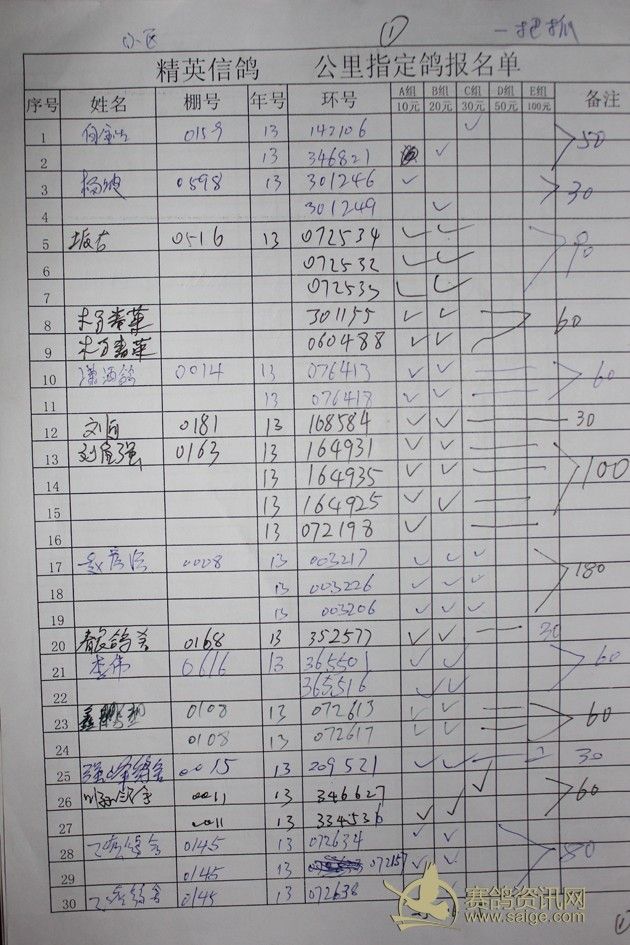 小区 ① 一把抓
精英信鸽 公里指定鸽报名单
序号 姓名 棚号 年号 环号 A组 B组 C组 D组 E组 备注
10元 20元 30元 50元 100元
1 0159 13 142106 ✓ 50
2 13 346821 ✓
3 0598 13 301246 ✓ 30
4 301249 ✓
5 0516 13 072534 ✓ ✓ 90
6 072532 ✓ ✓
7 072535 ✓ ✓
8 301155 ✓ ✓ 60
9 060488 ✓ ✓
10 潇洒鸽 0014 13 076413 ✓ ✓ 60
11 13 076418 ✓ ✓
12 0181 13 168584 ✓ ✓ 30
13 0163 13 164931 ✓ ✓ 100
14 13 164935 ✓ ✓
15 13 164925 ✓ ✓
16 13 072198 ✓
17 0008 13 003217 ✓ ✓ ✓ 180
18 13 003226 ✓ ✓ ✓
19 13 003206 ✓ ✓ ✓
20 0168 13 352577 ✓ ✓ 30
21 李伟 0616 13 365501 ✓ ✓ 60
22 365516 ✓ ✓
23 0108 13 072613 ✓ ✓ 60
24 0108 13 072617 ✓ ✓
25 0015 13 209521 ✓ ✓ 30
26 0011 13 346627 ✓ 60
27 0011 13 334536 ✓ ✓
28 0145 13 072634 ✓ ✓ 80
29 0145 13 072157 ✓ ✓
30 0145 13 072638
赛鸽资讯网
www.saige.com
①